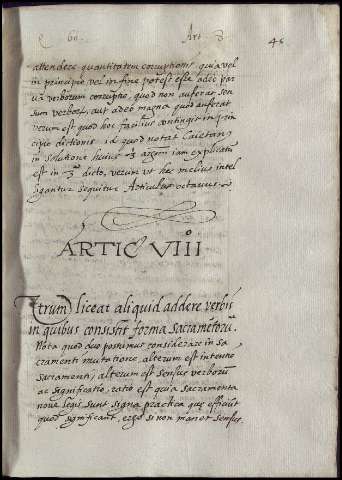 q. 60. Art. 8 46
attendere quantitatem corruptionis, quia vel
in principio, vel in fine potest esse adeo par
va verborum corruptio, quod non auferat sen
sum verborū, aut adeo magna quod auferat
verum est quod hoc facilius contingit in prin
cipio dictionis id quod notat Caietanꝰ
in solutione huius 3ꝭ argum iam explicatū
est in 3ᵃ dicto, verum ut hec melius intel
ligantur sequitur Articulus octavus
ARTIC VIII
Utrum liceat aliquid addere verbis
in quibus consistit forma sacramētorū
Nota quod duo possumus considerare in sa
cramenti mutatione alterum est intentio
sacramenti, alterum est sensus verborū
ac significatio, ratio est quia sacramenta
nove legis sunt signa practica que efficiūt
quod significant, ergo si non manet sensus